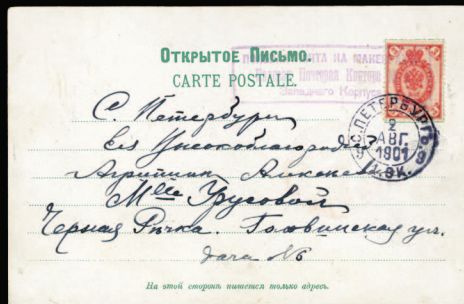 Открытое Письмо.
CARTE POSTALE.
НА МАКЕ
Почтовая Контора
Западнаго Корпуса
С. ПЕТЕРБУРГЪ
2
АВГ.
1901
9 9
С. Петербургъ
Ея Высокоблагородію
M-lle Урусовой
Черная Рѣчка. Головинская ул.
дача №6
На этой сторонѣ пишется только адресъ.